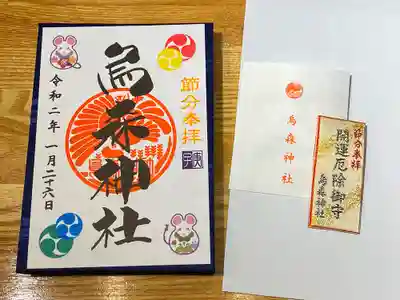 節分奉拝
庚子
烏森神社
令和二年 一月二十六日
烏森神社
節分奉拝
開運厄除御守
烏森神社